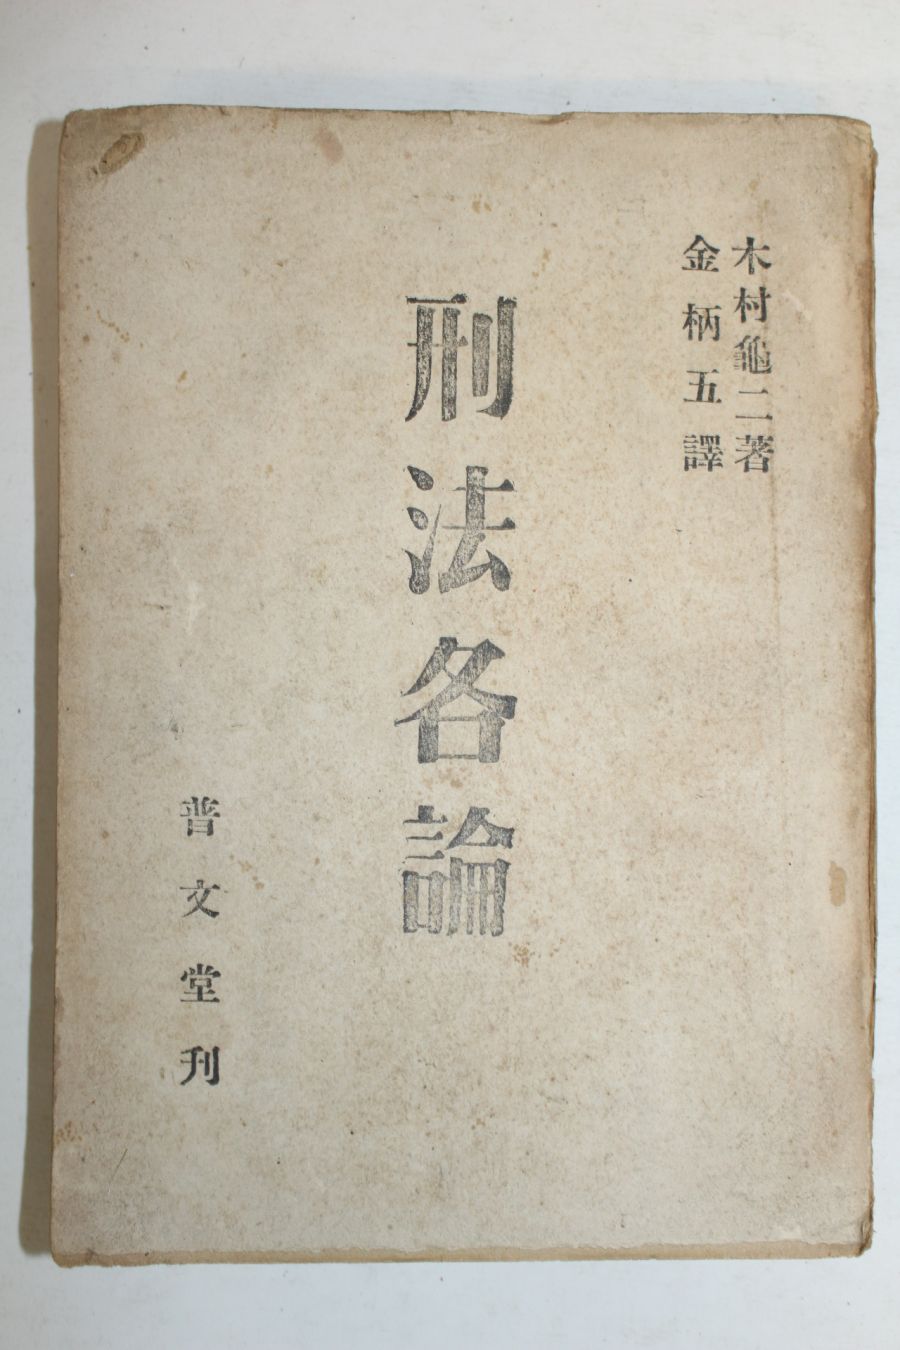 木村龜二著
金柄五譯
刑法各論
普文堂刊